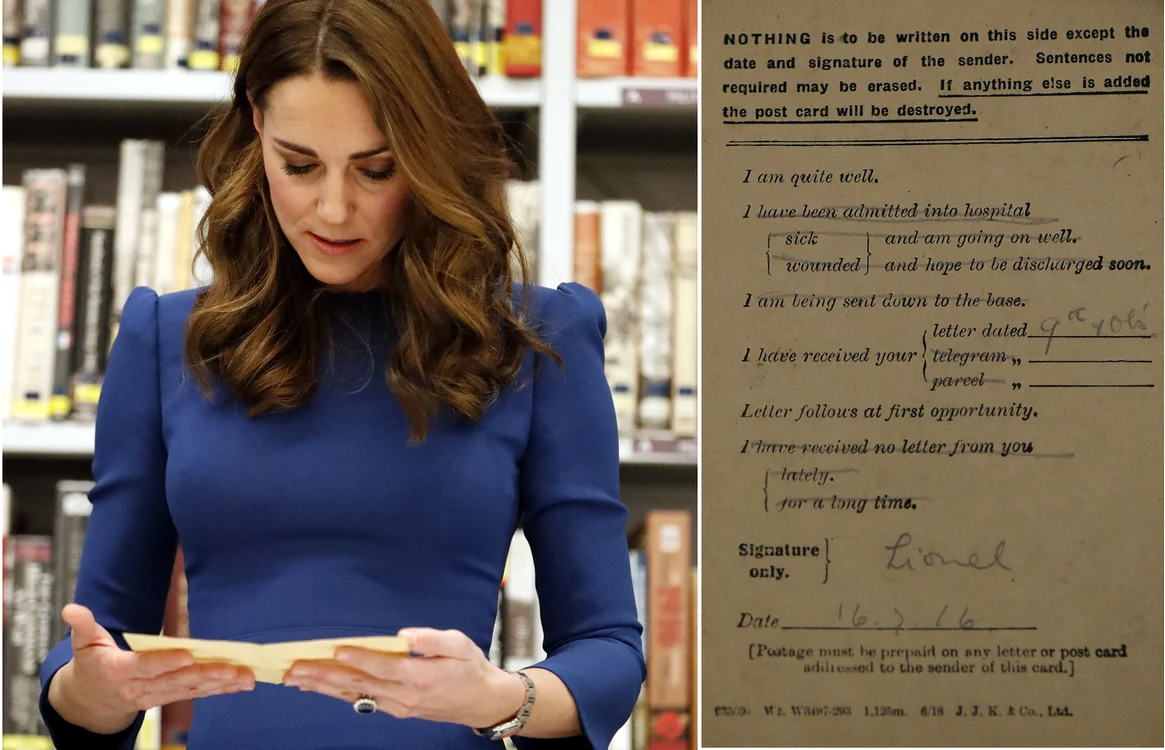 NOTHING is to be written on this side except the
date and signature of the sender. Sentences not
required may be erased. If anything else is added
the post card will be destroyed.
I am quite well.
I have been admitted into hospital
sick
and am going on well.
wounded
and hope to be discharged soon.
I am being sent down to the base.
letter dated
I have received your
telegram „
parcel „
Letter follows at first opportunity.
I have received no letter from you
lately.
for a long time.
Signature
only.
Lionel
Date 16.7.16
[Postage must be prepaid on any letter or post card
addressed to the sender of this card.]
Wt. W3497-293 1,125m. 6/16 J. J. K. & Co., Ltd.